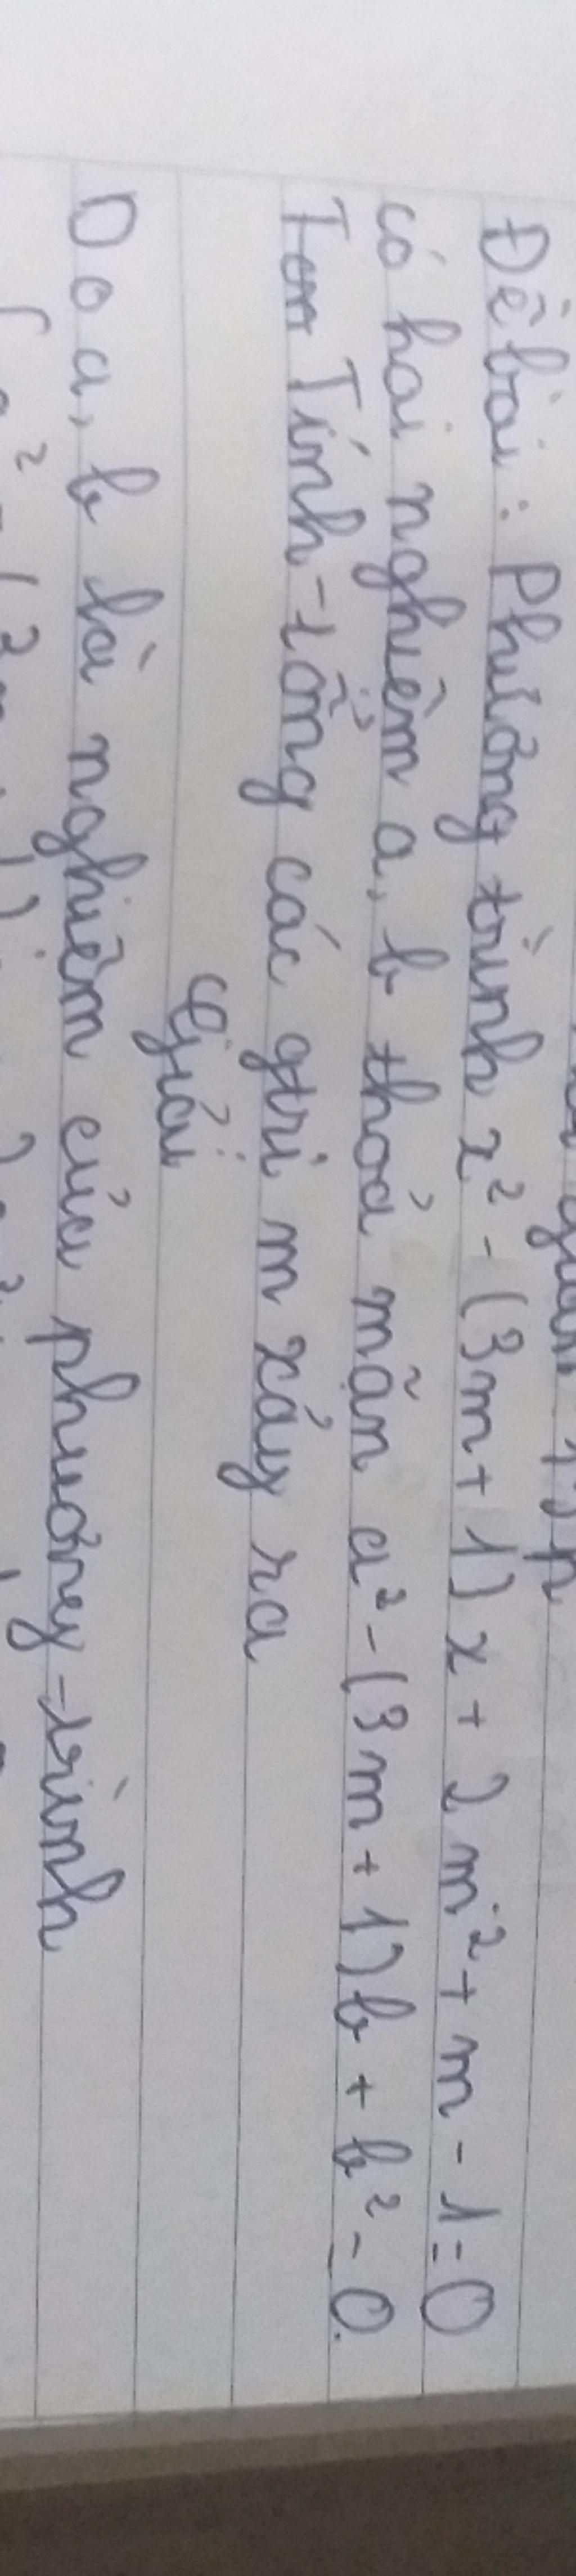 Đề bài: Phương trình x² - (3m + 1)x + 2m² + m - 1 = 0
có hai nghiệm a, b thoả mãn a² - (3m + 1)b + b² = 0.
Tính tổng các gtri m xảy ra
Giải
Do a, b là nghiệm của phương trình